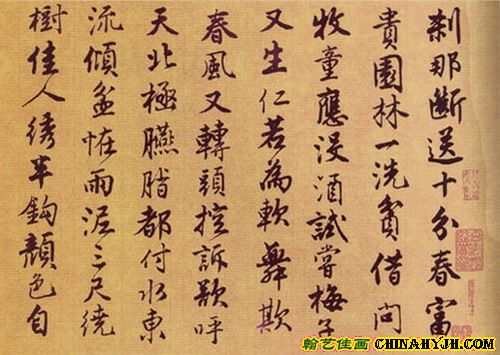 刹那斷送十分春富
貴園林一洗貧借問
牧童應没酒試嘗梅子
又生仁若為軟舞欺
春風又轉頭控訴歌呼
天北極臙脂都付水東
流傾盆恠雨泥三尺繞
樹佳人綉半鈎顏色自
翰艺佳画 CHINAHYJH.COM